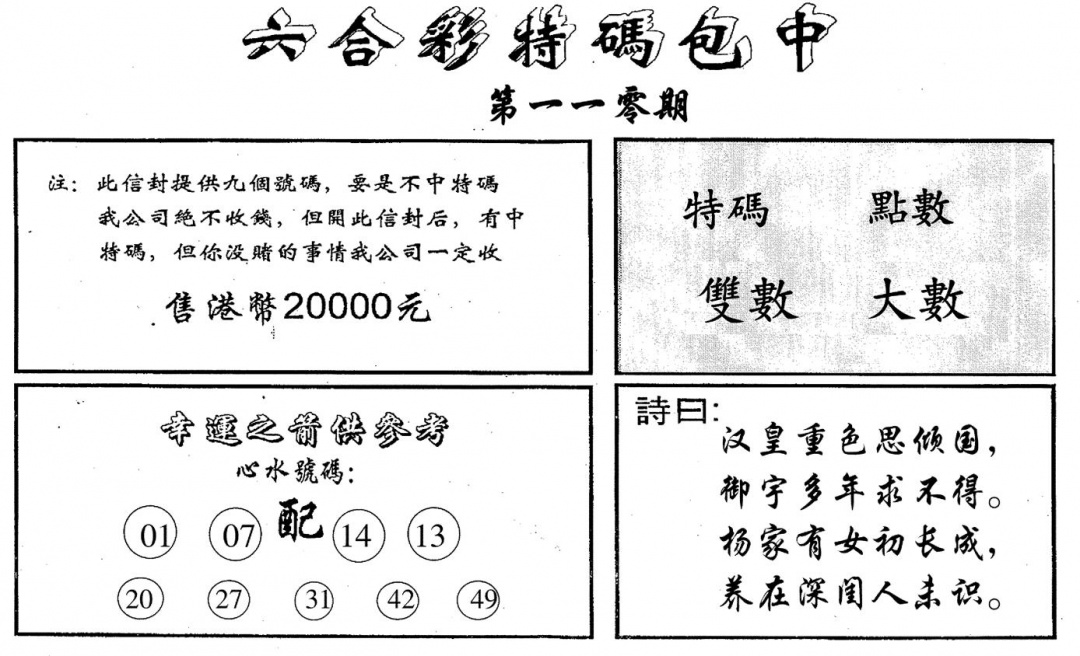 六合彩特碼包中
第一一零期
注：此信封提供九個號碼，要是不中特碼
我公司絕不收錢，但開此信封后，有中
特碼，但你没賭的事情我公司一定收
售港幣20000元
特碼 點數
雙數 大數
幸運之箭供參考
心水號碼：
配
01 07 14 13
20 27 31 42 49
詩曰：
汉皇重色思倾国，
御宇多年求不得。
杨家有女初长成，
养在深闺人未识。